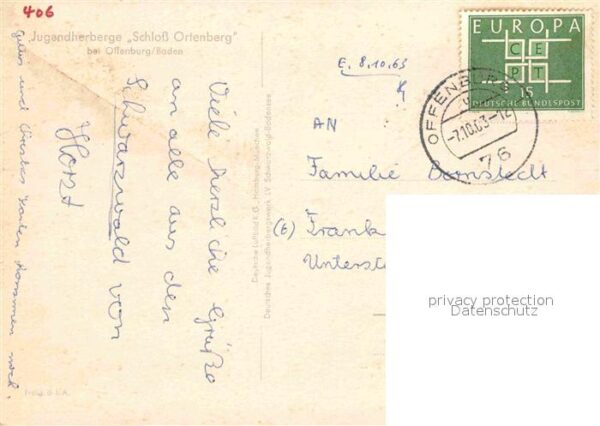 406
Jugendherberge „Schloß Ortenberg"
bei Offenburg/Baden
Viele herzliche Grüße
an alle aus dem
Schwarzwald von
Horst
und Karten kommen noch.
Freig. d. L.A.
Deutsche Luftbild K.G. Hamburg-München
Deutsches Jugendherbergswerk LV Schwarzwald-Bodensee
E. 8.10.63
EUROPA
CEPT
15
DEUTSCHE BUNDESPOST
OFFENBURG
-7.10.63-12
76
AN
Familie Bernstedt
(E) Frank
Unterst
privacy protection
Datenschutz